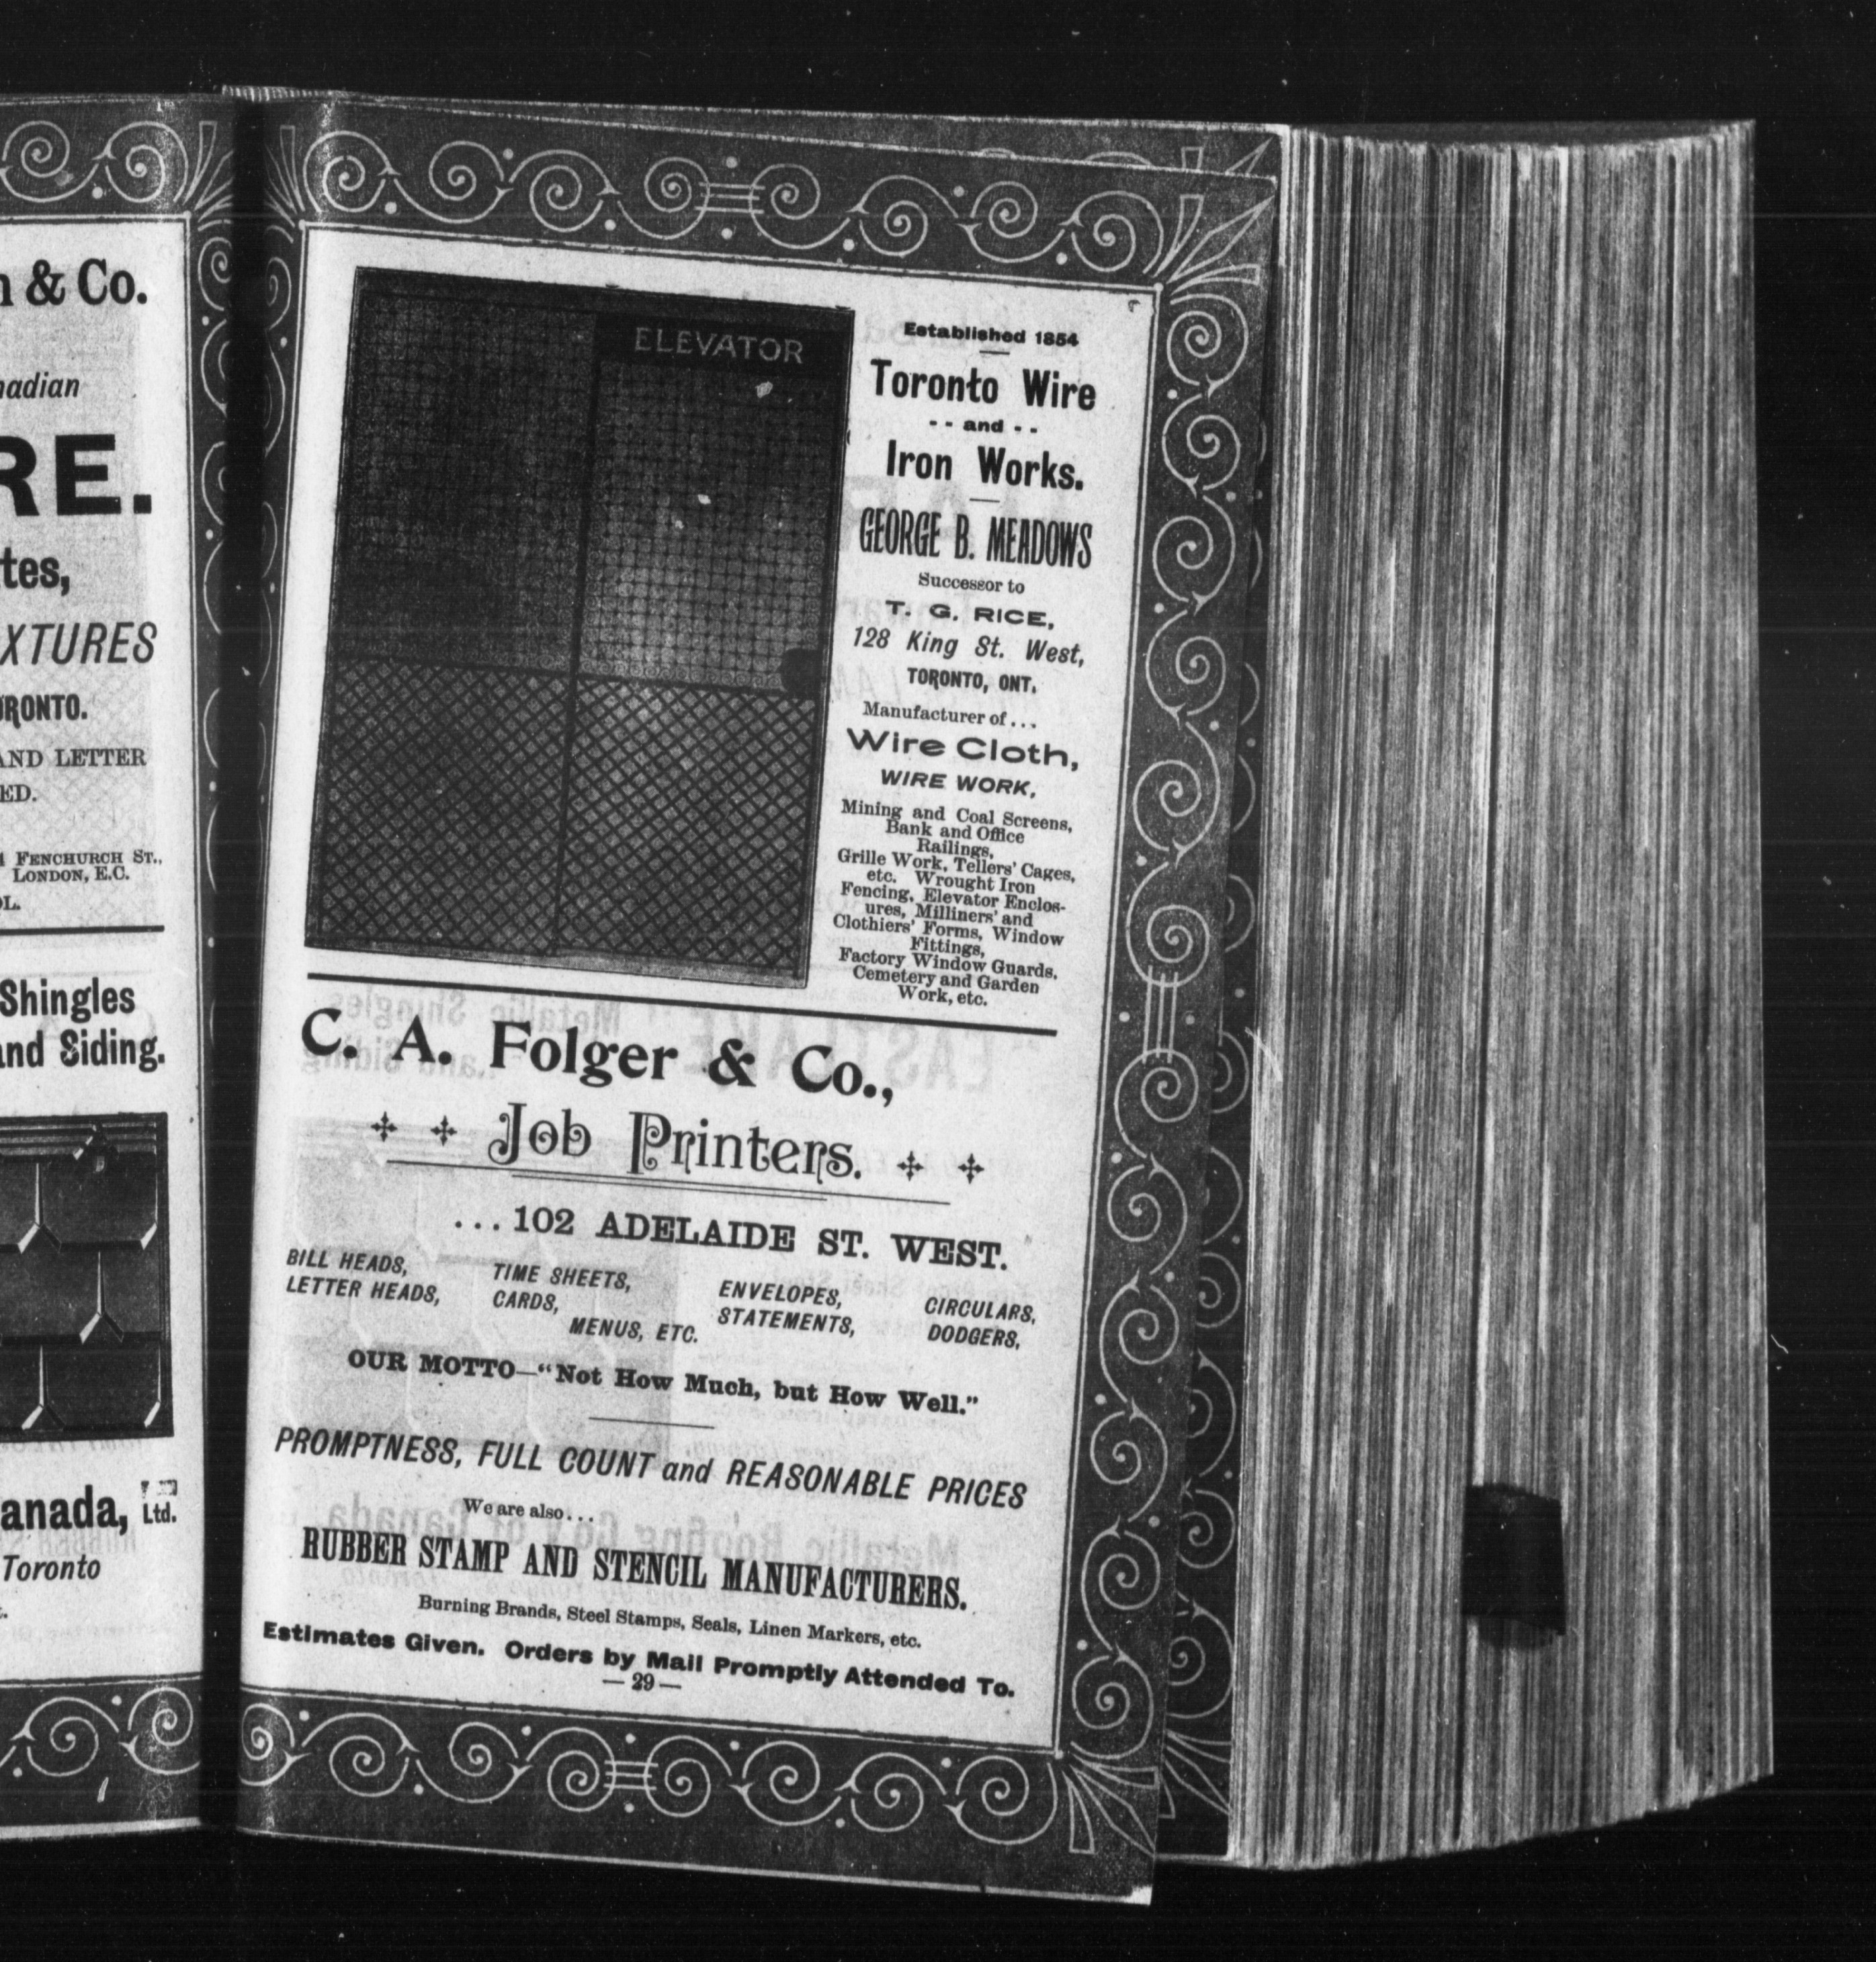 & Co.
RE.
XTURES
AND LETTER
FENCHURCH ST.,
LONDON, E.C.
Shingles
and Siding.
Ltd.
Toronto
ELEVATOR
Established 1854
Toronto Wire
- - and - -
Iron Works.
GEORGE B. MEADOWS
Successor to
T. G. RICE,
128 King St. West,
TORONTO, ONT.
Manufacturer of...
Wire Cloth,
WIRE WORK,
Mining and Coal Screens,
Bank and Office
Railings,
Grille Work, Tellers' Cages,
etc. Wrought Iron
Fencing, Elevator Enclos-
ures, Milliners' and
Clothiers' Forms, Window
Fittings,
Factory Window Guards,
Cemetery and Garden
Work, etc.
C. A. Folger & Co.,
Job Printers.
...102 ADELAIDE ST. WEST.
BILL HEADS, TIME SHEETS, ENVELOPES, CIRCULARS,
LETTER HEADS, CARDS, STATEMENTS, DODGERS,
MENUS, ETC.
OUR MOTTO—"Not How Much, but How Well."
PROMPTNESS, FULL COUNT and REASONABLE PRICES
We are also...
RUBBER STAMP AND STENCIL MANUFACTURERS.
Burning Brands, Steel Stamps, Seals, Linen Markers, etc.
Estimates Given. Orders by Mail Promptly Attended To.
— 29 —